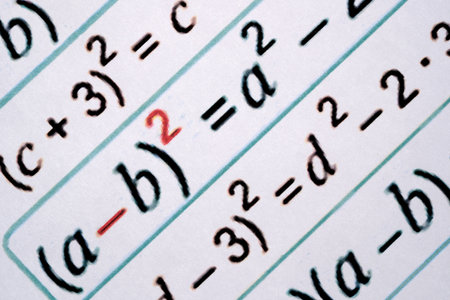 b)
(c + 3)² = c
(a − b)² = a² − 2
d − 3)² = d² − 2 · 3
)(a − b)